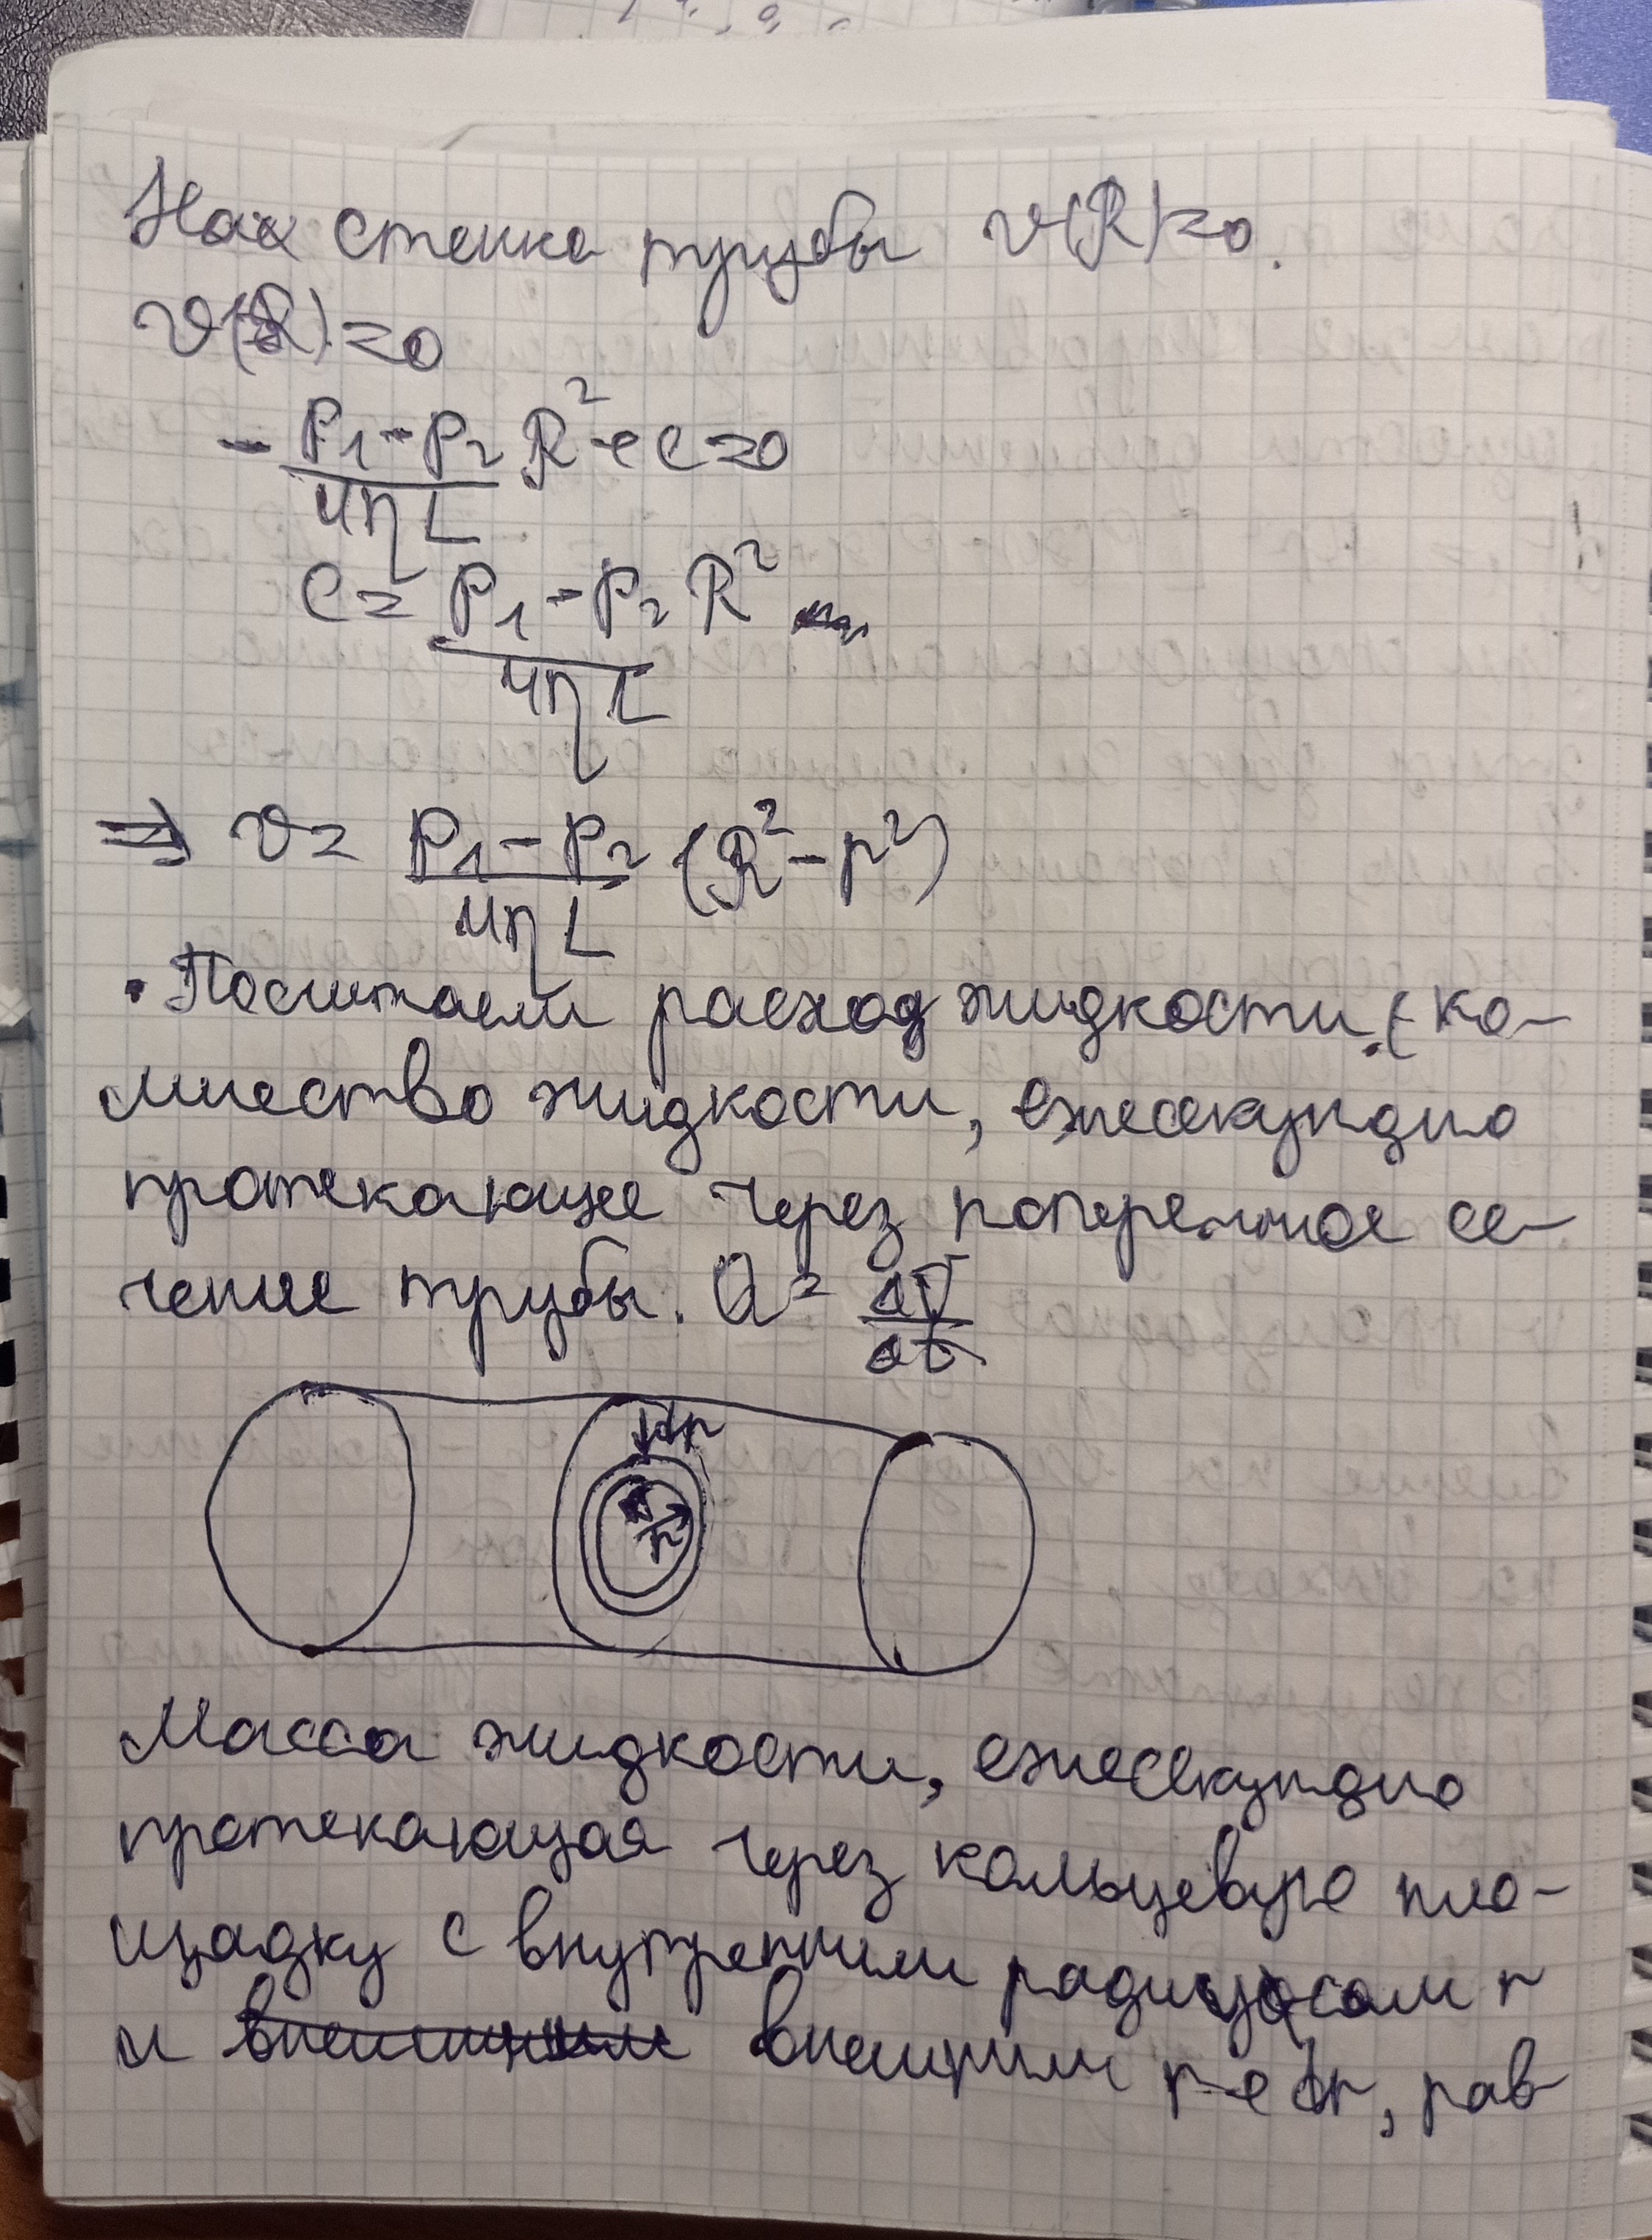 На стенка трубы v(R)=0.
v(R)=0
- P₁-P₂/4ηL R²+C=0
C= P₁-P₂/4ηL R²
⇒ v= P₁-P₂/4ηL (R²-r²)
• Посчитаем расход жидкости. (ко-
личество жидкости, ежесекундно
протекающее через поперечное се-
чение трубы. Q= ΔV/Δt
dr
r
Масса жидкости, ежесекундно
протекающая через кольцевую пло-
щадку с внутренним радиусом r
и внешним r+dr, рав